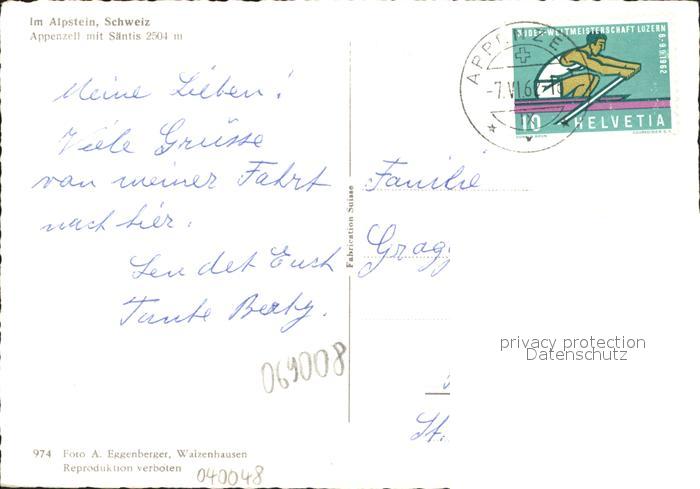 Im Alpstein, Schweiz
Appenzell mit Säntis 2504 m
Meine Lieben!
Viele Grüsse
von meiner Fahrt
nach hier.
Sendet Euch
Tante Berty.
Fabrication Suisse
APPENZELL
-7.VI.62-18
RUDER-WELTMEISTERSCHAFT LUZERN
6-9.9.1962
10 HELVETIA
COURVOISIER S.A.
Familie
Grog
St.
privacy protection
Datenschutz
069008
974 Foto A. Eggenberger, Waizenhausen
Reproduktion verboten
040048